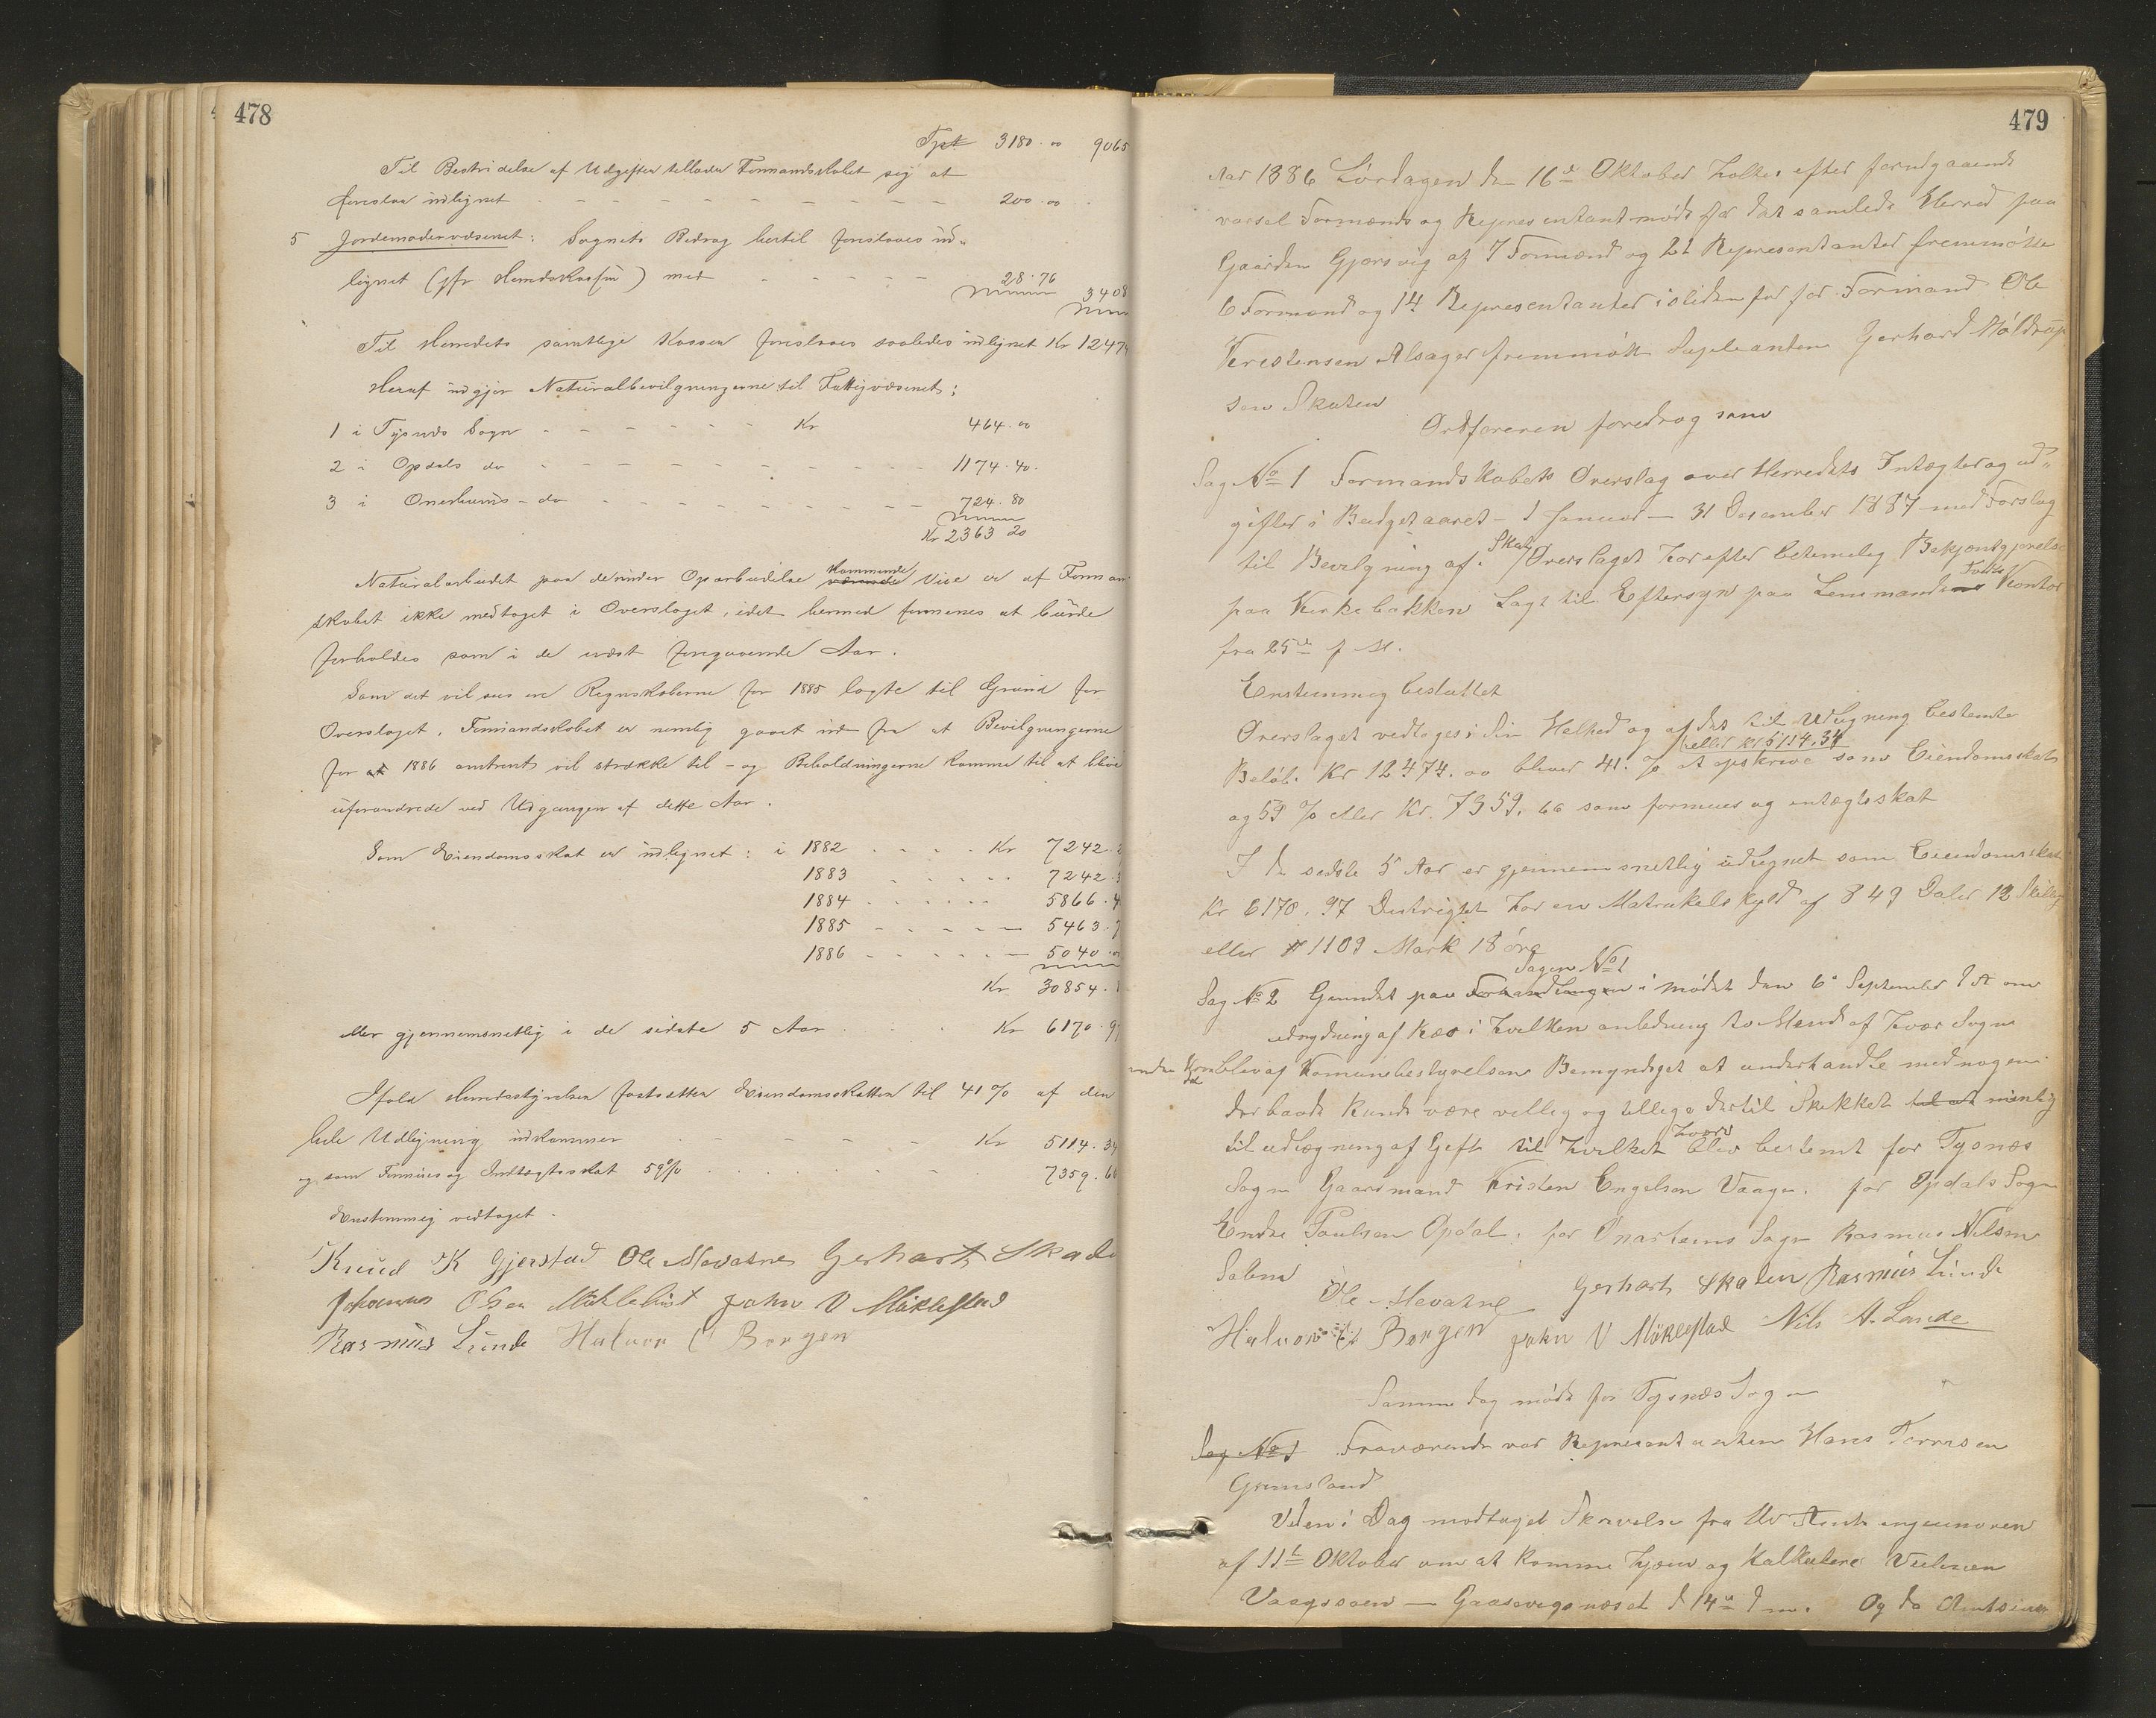 478
Tpt 3180.00 9065
Til Bestridelse af Udgifter tillader Formandskabet sig at
foreslaa udlignet - - - - - - - - - - 200.00
5 Jordemodervæsenet: Sognets Bidrag hertil foreslaaes ud-
lignet (jfr Herredskassen) med - - - - - 28.76
3408
Til Herredets samtlige Kasser foreslaaes saaledes udlignet Kr 1247
Heraf udgjør Naturalbevilgningerne til Fattigvæsenet:
1 i Tysnes Sogn - - - - - - Kr 464.00
2 i Opdals do - - - - - - - - - - 1174.40.
3 i Onerheims - do - - - - - - - - - 724.80
Kr 2363 20
Naturalarbeidet paa de under Oparbeidelse værende kommende Veie er af Forman
skabet ikke medtaget i Overslaget, idet hermed formenes at burde
forholdes som i de nærst foregaaende Aar.
Som det vil sees ere Regnskaberne for 1885 lagte til Grund for
Overslaget. Formandskabet er nemlig gaaet ud fra at Bevilgningerne
for at 1886 omtrent vil strække til - og Beholdningerne komme til at blive
uforandrede ved Udgangen af dette Aar.
Som Eiendomsskat er udlignet: i 1882 . . . . Kr 7242.
1883 . . . . . . 7242.
1884 . . . . . . 5866.
1885 - - - - - 5463.
1886 - - - - - 5040.
Kr 30854.
eller gjennemsnitlig i de sidste 5 Aar . . . Kr 6170.9
Ifald Herredsstyrelsen fastsætter Eiendomsskatten til 41% af den
hele Udligning udkommer - - - - - Kr 5114.34
og som Formues og Indtægtsskat 59% . . . . . . 7359.66
Enstemmig vedtaget.
Knud K Gjerstad Ole Mevatne Gerhart Skade
Johannes Olsen Myklestad John V Myklestad
Rasmus Lunde Halvor O Borgen
479
Aar 1886 Lørdagen den 16de Oktober holtes efter forudgaaende
varsel Formænds og Representantmøde for det samlede Herred paa
Gaarden Gjersvig af 7 Formænd og 21 Representanter fremmøtte
6 Formænd og 14 Representanter istedenfor for Formand Ole
Kristensen Alsager fremmøtte Supleanten Gerhard Høldrup
sen Skaten
Ordføreren foredrog som
Sag No 1 Formandskabets Overslag over Herredets Intægter og ud-
gifter i Budgetaaret - 1 Januar - 31 Desember 1887 med Forslag
til Bevilgning af. Skat Overslaget har efter betimelig Bekjentgjørelse
paa Kirkebakken Lagt til Eftersyn paa Lensmandens Kontor
fra 25de f M.
Enstemmig besluttet
Overslaget vedtages i sin Helhed og af det til Udligning bestemte
eller kr 5114.34
Beløb. Kr 12474.00 bliver 41. % at opskrive som Eiendomsskat
og 59 % eller Kr. 7359.66 som formues og intægtsskat
I de sidste 5 Aar er gjennemsnitlig udlignet som Eiendomsskat
Kr 6170.97 Distrigtet har en Matrikelskyld af 849 Daler 12 Skilling
eller 1109 Mark 18 øre
Sagen No 1
Sag No 2 Grundet paa Forhandlingen i mødet den 6te September d A om
udrydning af Ræv i hvilken anledning to Mend af hver Sogn
blev af Komunebestyrelsen Bemyndiget at underhandle med nogen
der baade kunde være villig og tillige dertil Skikket til at nemlig
til udlægning af Gift til hvilket hverv blev bestemt for Tysnæs
Sogn Gaardmand Kristen Engelsen Vaage. for Opdals Sogn
Endre Poulsen Opdal. for Onarheims Sogn Rasmus Nilsen
Ole Mevatne Gerhart Skaten Rasmus Lunde
Halvor O Borgen John V Myklestad Nils A. Lande
Samme dag møde for Tysnæs Sogn
Sag No 1 Fraværende var Representanten Hans
Grimsland
Veden i Dag modtaget Skrivelse fra Hr Amtsingeniøren
af 11te Oktober om at komme hjem og Kalkulere Veilinien
Vaagsøen - Gaasevigsnæset d 14de d m. Og da Amtsinge